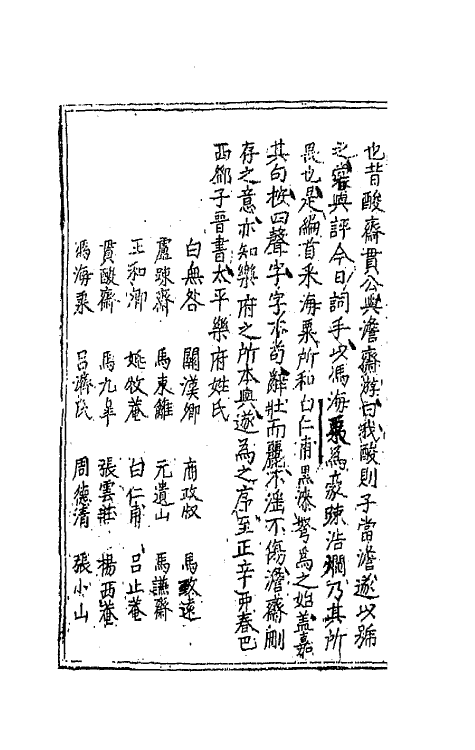 也昔酸齋貫公與澹齋游曰我酸則子當澹遂以號
之常與評今日詞手以馮海粟爲豪辣浩爛乃其所
畏也是編首采海粟所和白仁甫黑漆弩爲之始盖嘉
其句按四聲字字不苟辭壯而麗不淫不傷澹齋刪
存之意亦知樂府之所本與遂爲之序至正辛卯春巴
西鄧子晉書太平樂府姓氏
白無咎 關漢卿 商政叔 馬致遠
盧疎齋 馬東籬 元遺山 馬謙齋
王和卿 姚牧菴 白仁甫 吕止菴
貫酸齋 馬九臯 張雲莊 楊西菴
馮海粟 吕濟民 周德清 張小山